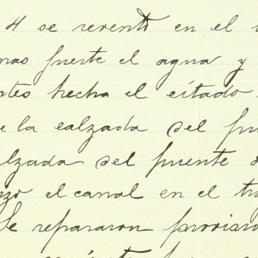 4 se reventó en el
mas fuerte el agua y
hecha el estado
e la calzada del pu
lzada del puente d
zo el canal en el tr
Se repararon provisio